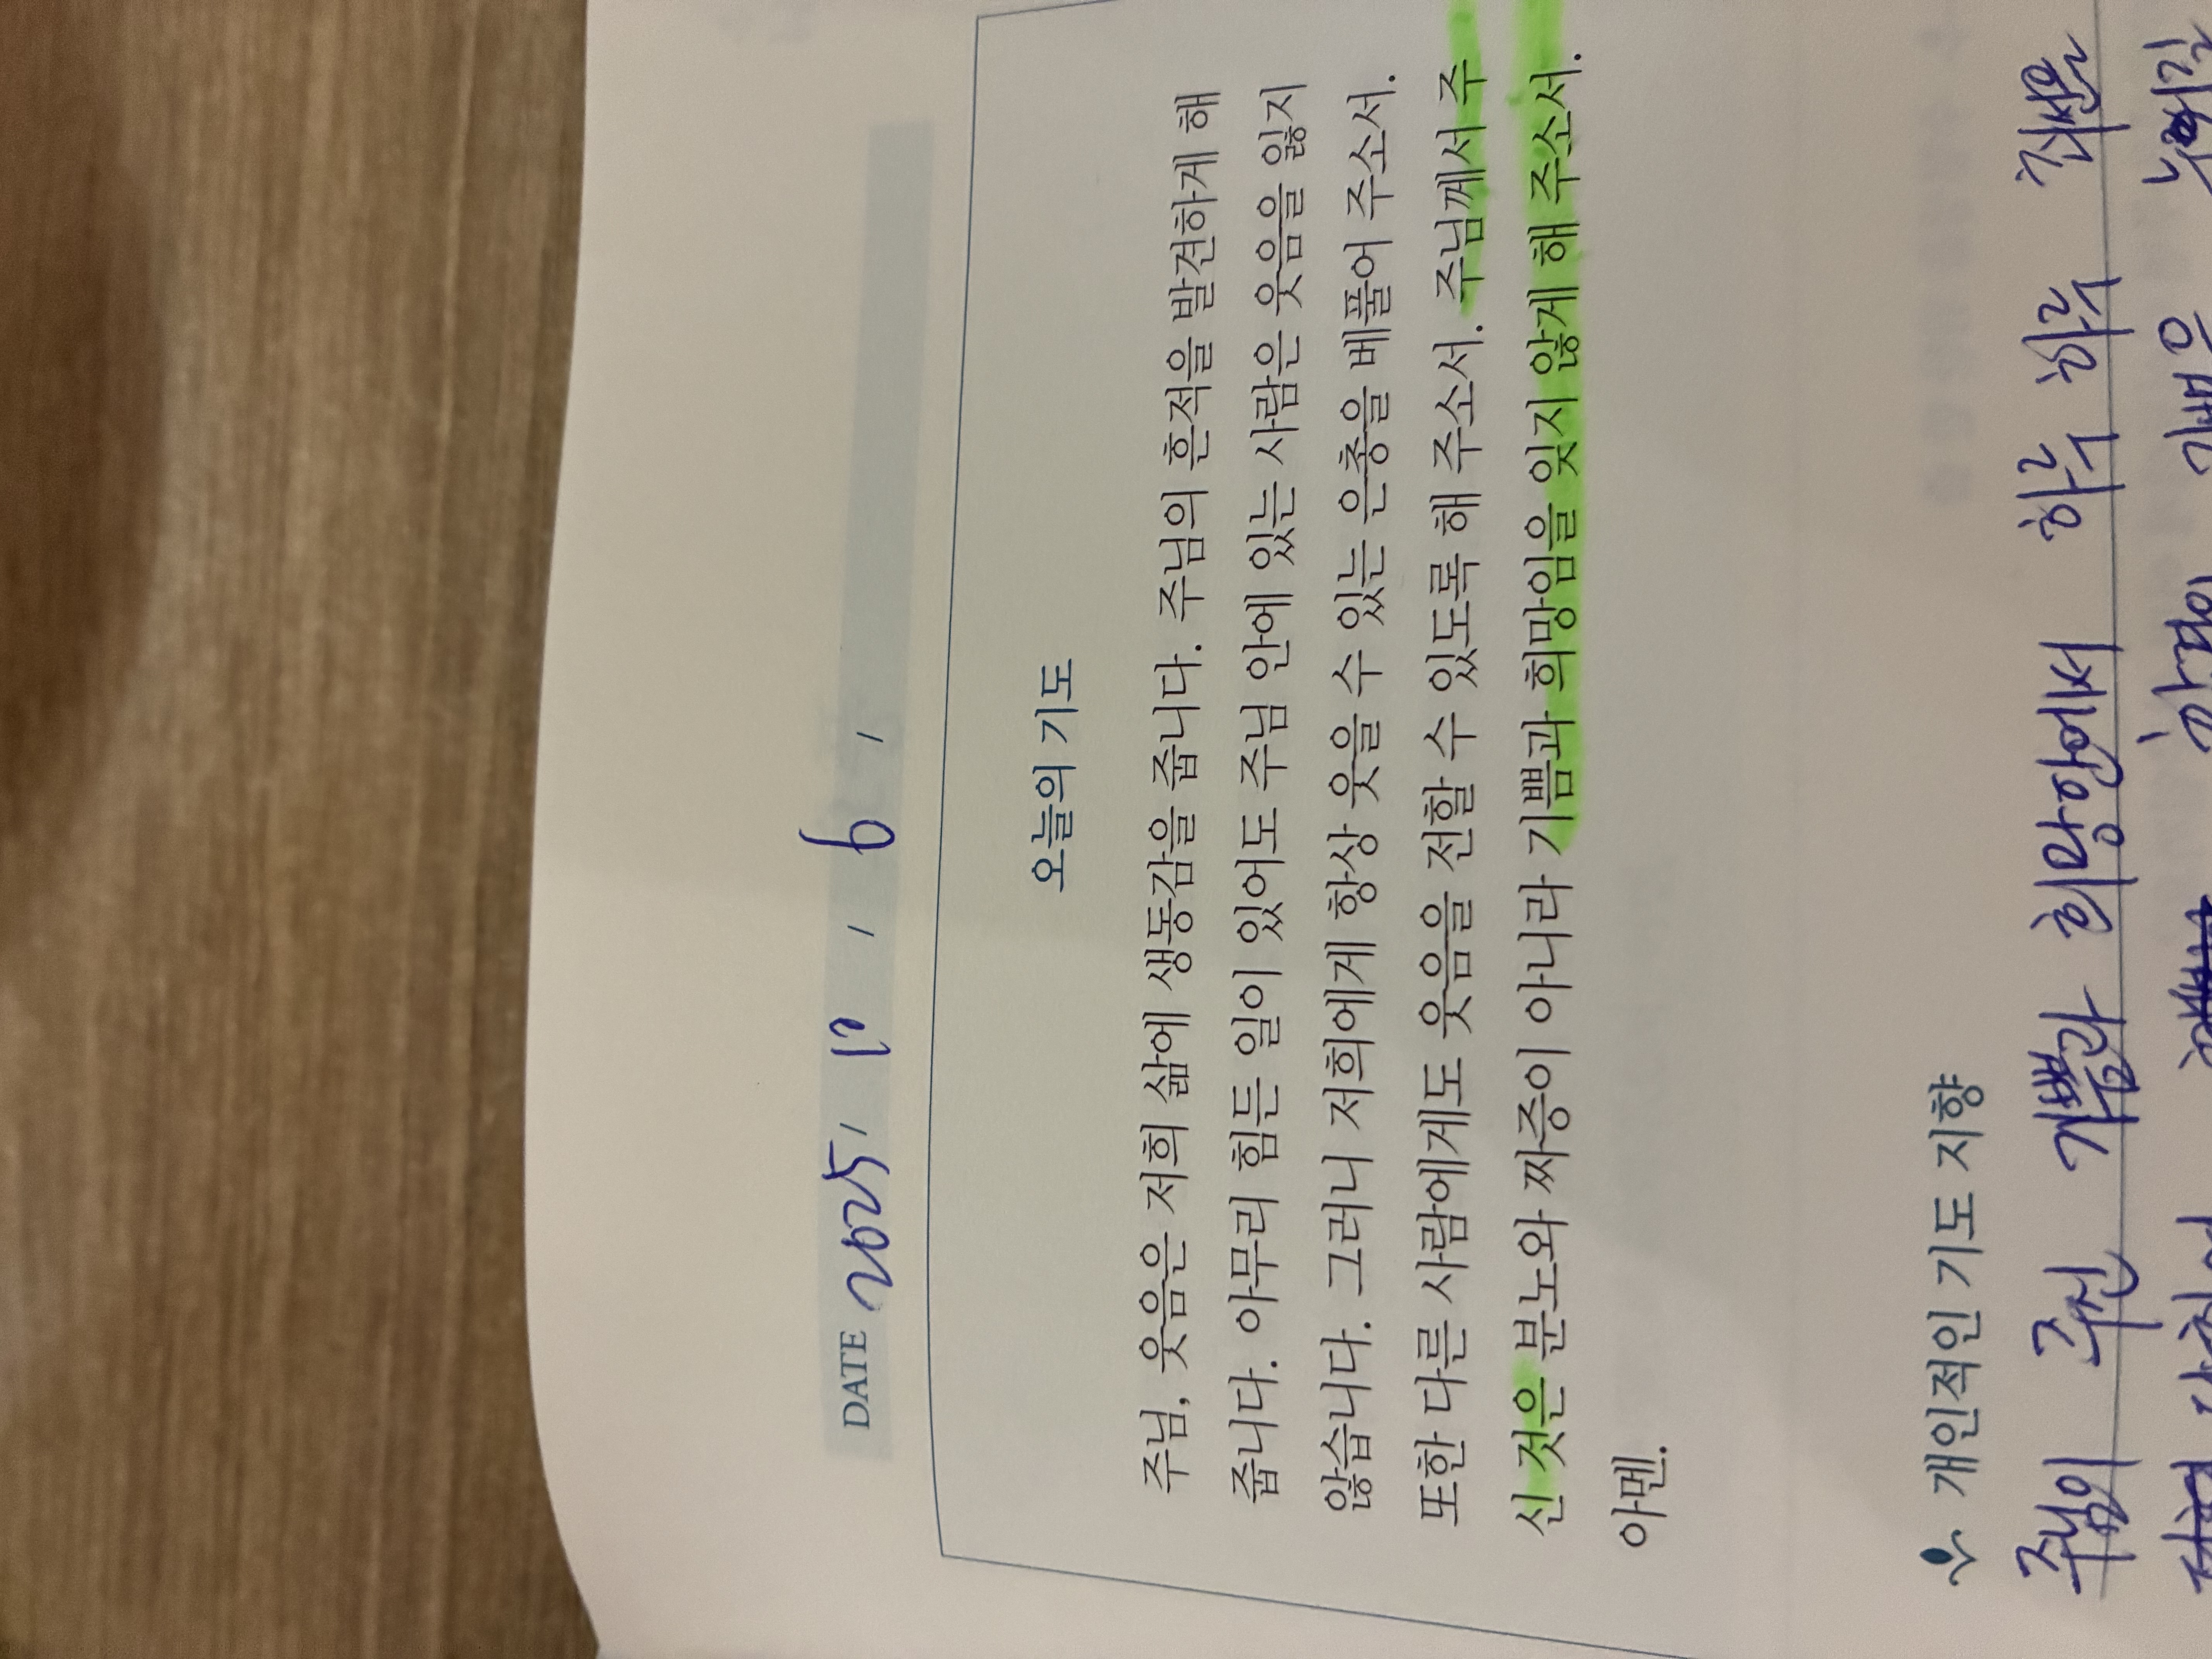 DATE 2025, 10, 6,
오늘의 기도
주님, 웃음은 저희 삶에 생동감을 줍니다. 주님의 흔적을 발견하게 해
줍니다. 아무리 힘든 일이 있어도 주님 안에 있는 사람은 웃음을 잃지
않습니다. 그러니 저희에게 항상 웃을 수 있는 은총을 베풀어 주소서.
또한 다른 사람에게도 웃음을 전할 수 있도록 해 주소서. 주님께서 주
신 것은 분노와 짜증이 아니라 기쁨과 희망임을 잊지 않게 해 주소서.
아멘.
개인적인 기도 지향
주님이 주신 기쁨과 희망안에서 하루 하루 최선을